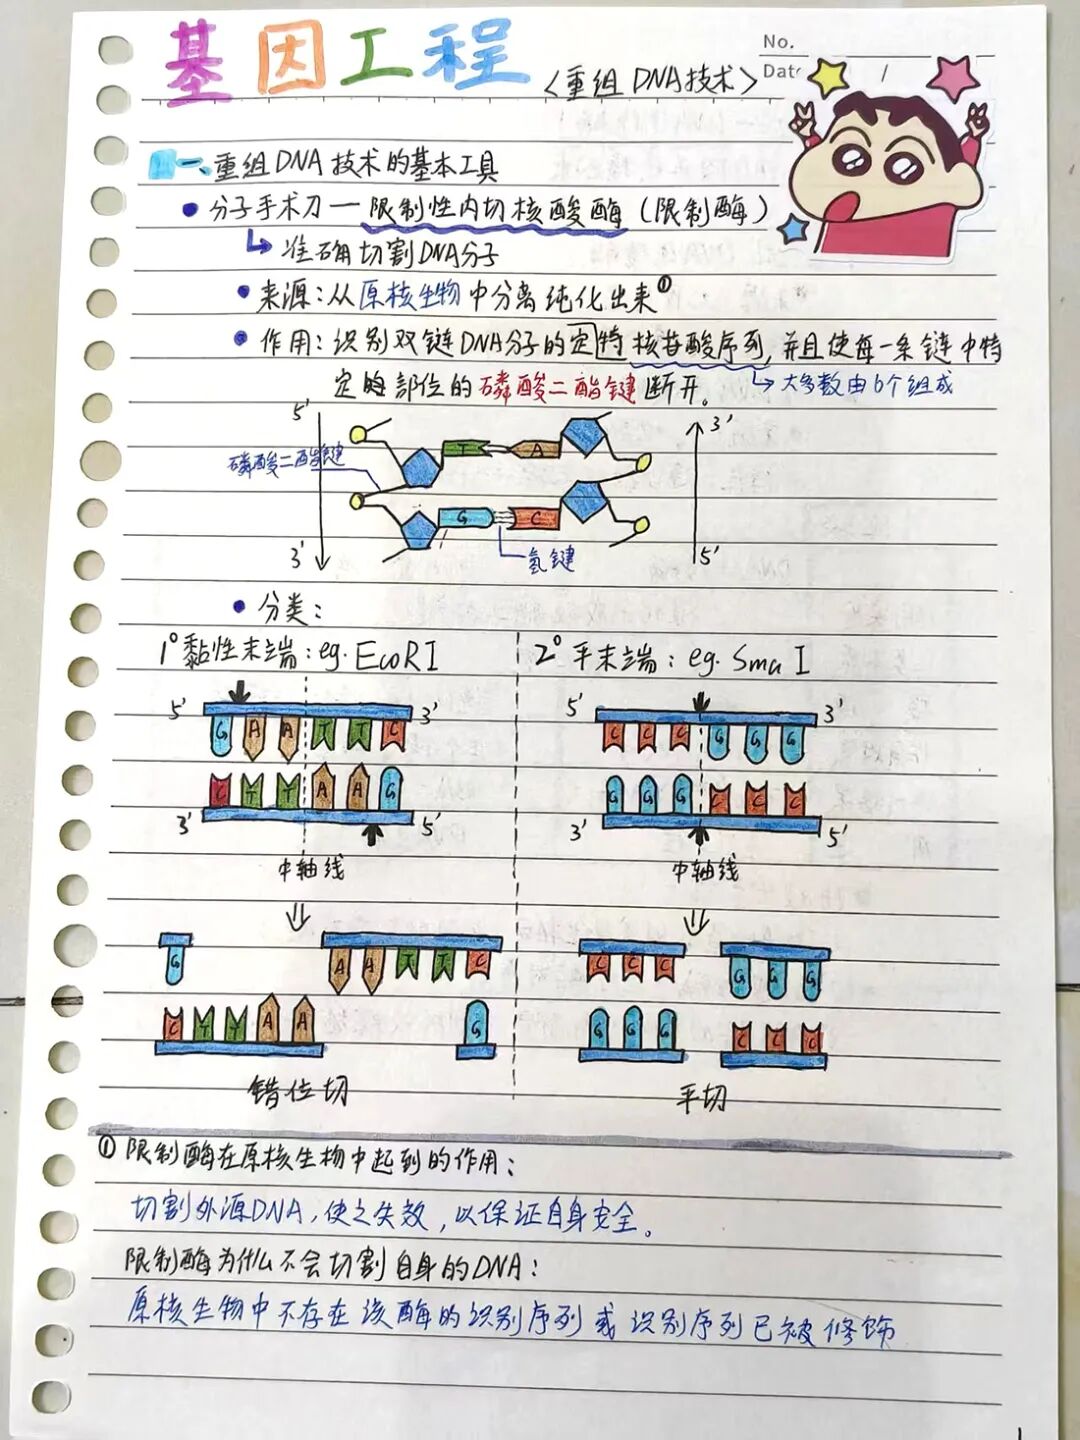 基因工程
<重组DNA技术>
No.
Date /
一、重组DNA技术的基本工具
• 分子手术刀—限制性内切核酸酶(限制酶)
↳ 准确切割DNA分子
• 来源:从原核生物中分离纯化出来①
• 作用:识别双链DNA分子的定特核苷酸序列,并且使每一条链中特
定的部位的磷酸二酯键断开。 ↳大多数由6个组成
5' 3'
磷酸二酯键
T A
G C
3' 氢键 5'
• 分类:
1°黏性末端:eg. EcoRI
2°平末端:eg. Sma I
5' 3' 5' 3'
G A A T T C C C C G G G
C T T A A G G G G C C C
3' 5' 3' 5'
中轴线 中轴线
G A A T T C C C C G G G
C T T A A G G G G C C C
错位切 平切
① 限制酶在原核生物中起到的作用:
切割外源DNA,使之失效,以保证自身安全。
限制酶为什么不会切割自身的DNA:
原核生物中不存在该酶的识别序列或识别序列已被修饰
1